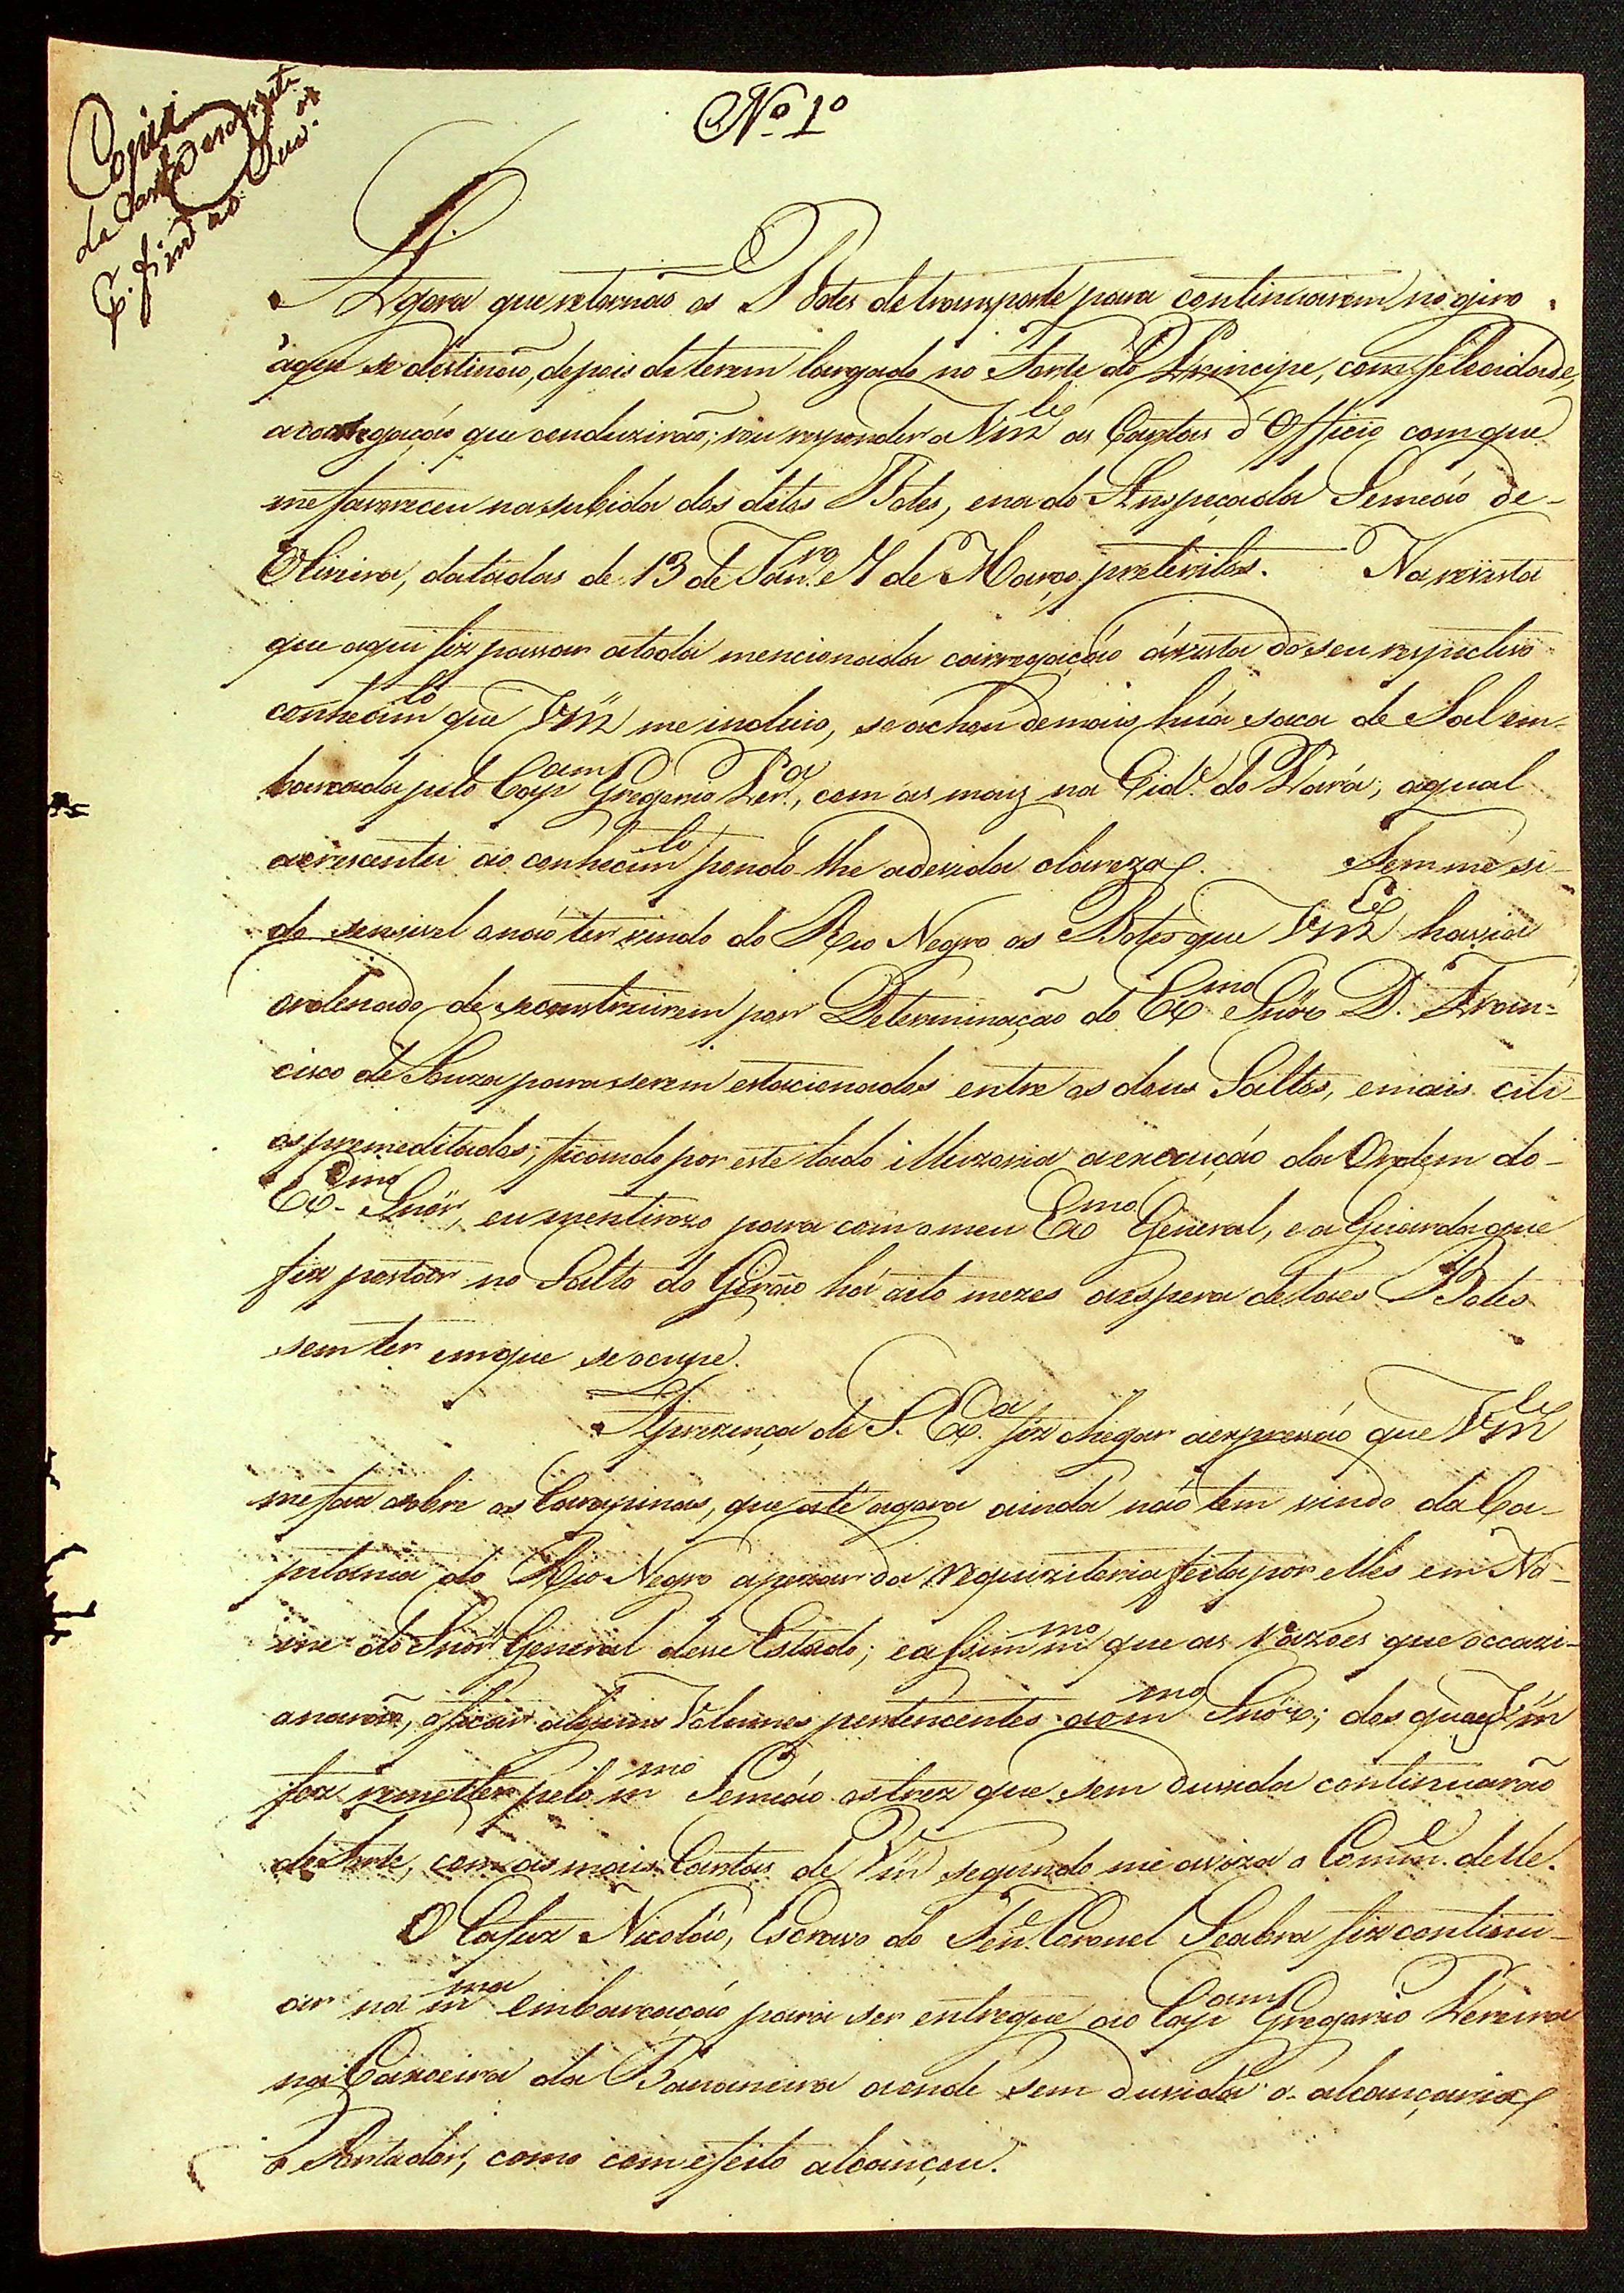 Nº 1º
Copia
da Carta
Agora que retornaõ os Botes de transporte para continuarem no giro
áque se destinaõ, depois de terem largado no Forte do Principe, com felecidade,
a carregaçáo que conduziraõ; vou responder a Vm.ce as Cartas d'Officio com que
me favoreceu na subida dos ditos Botes, e na do Anspeçada Semeáo de-
Oliveira, datadas de 13 de Jan.ro e 7 de Março preteritos. Na revista
que aqui fiz passar a toda mencionada carregaçáo ávista do seu respectivo
conhecim.to que Vm.ce me incluio, se achou demais húa saca de Sal em-
barcada pelo Cap.am Gregorio Per.a, com as mais na Cid.e do Pará; aqual
acrescentei ao conhecim.to pondo-lhe adevida clareza. Tem me si-
do sensivel anáo ter vindo do Rio Negro os Botes que Vm.ce havia
ordenado de se construirem por Determinaçaõ do Ex.mo Snór D. Fran-
cisco de Souza para serem estacionados entre os dous Saltos, e mais citi-
os premeditados; ficando por este lado illuzoria aexecuçáo da Ordem do-
Ex.mo Snór, eu mentirozo para com o meu Ex.mo General, e a Guarda que
fiz postar no Salto do Giráo há oito mezes áespera de taes Botes
sem ter em que se ocupe.
Aprezença de S. Ex.a fiz chegar aexpressáo que Vm.ce
me faz sobre os Carapinas, que até agora ainda náo tem vindo da Ca-
pitania do Rio Negro apezar da requizitoria feita por elles em No-
me do Snór General desse Estado; e assim m.mo que as razoes que occazi-
onaraõ, oficar alguns Volumes pertencentes ao m.mo Snór; dos quaes Vm.ce
fez remetter pelo m.mo Semeáo os trez que sem duvida continuaraõ
do Forte, com as mais Cartas de Vm.ce segundo me aviza o Comm.e delle.
O Cafuz Nicoláo, Escravo do Ten.e Coronel Seabra fiz continu-
ar na m.ma embarcaçáo para ser entregue ao Cap.am Gregorio Pereira
na Caxoeira da Bananeira aonde sem duvida o alcançaria
o Portador, como com efeito alcançou.